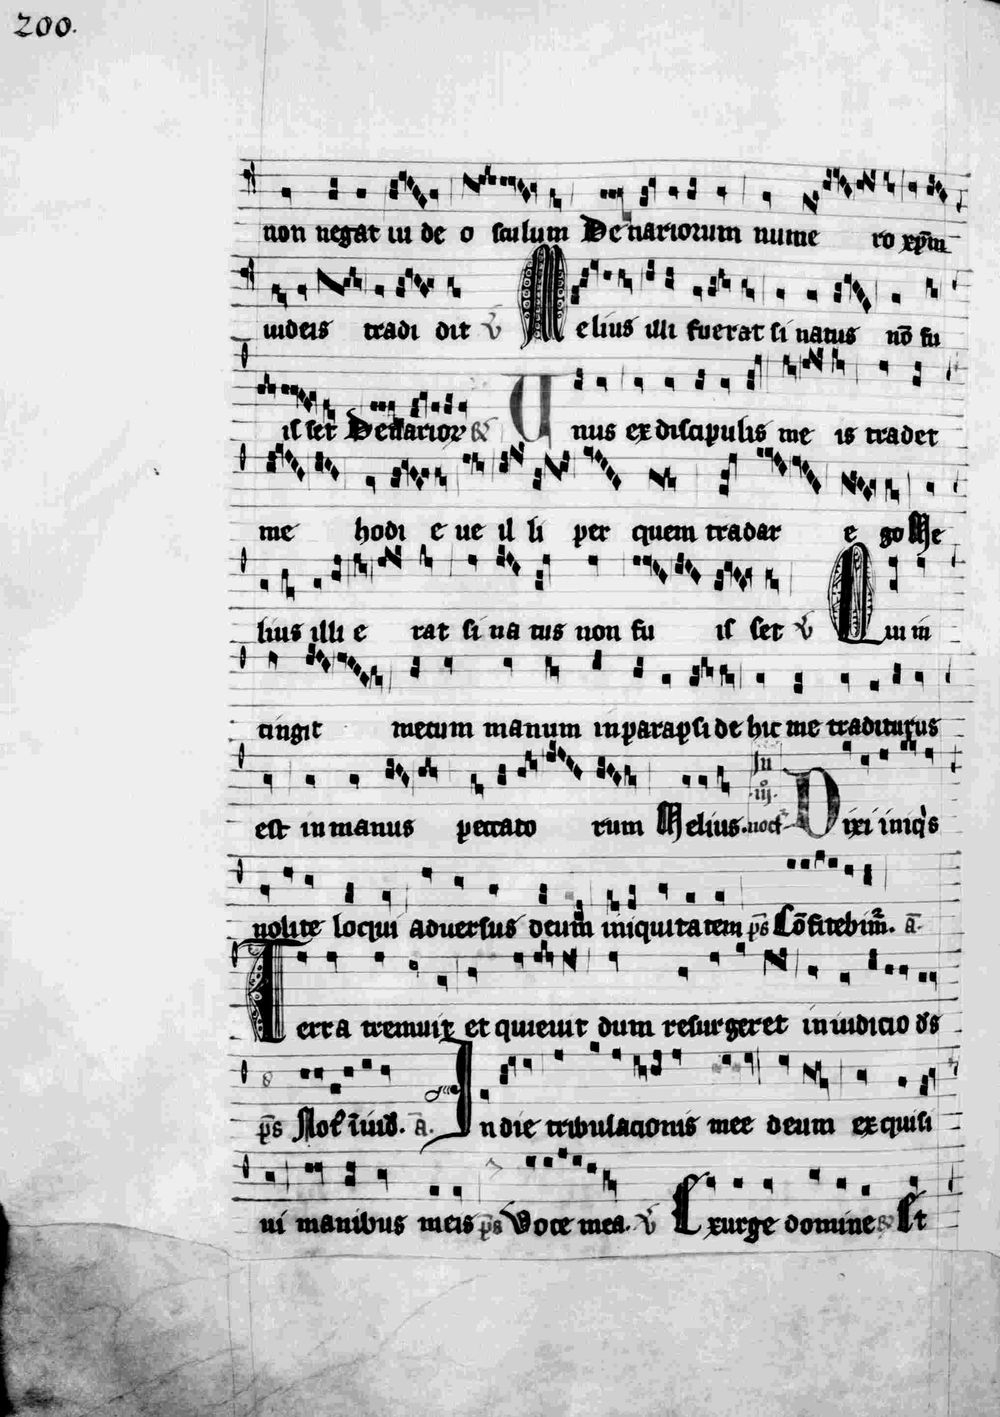 200.
non negat iu de o sculum Denariorum nume ro xp̄m
iudeis tradi dit ℣ Melius illi fuerat si natus nō fu
is set Denarior ꝶ Unus ex discipulis me is tradet
me hodi e ue il li per quem tradar e go Me
lius illi e rat si na tus non fu is set ℣ Qui in
tingit mecum manum in parapside hic me traditurus
est in manus peccato rum Melius. In .iij. noct Dixi iniq's
nolite loqui aduersus deum iniquitatem p̄s Cōfitebim. a.
Terra tremuit et quieuit dum resurgeret in iudicio d̄s
p̄s Not ī iud. a. In die tribulacionis mee deum exquisi
ui manibus meis p̄s Voce mea. ℣ Exurge domine ꝶ Et